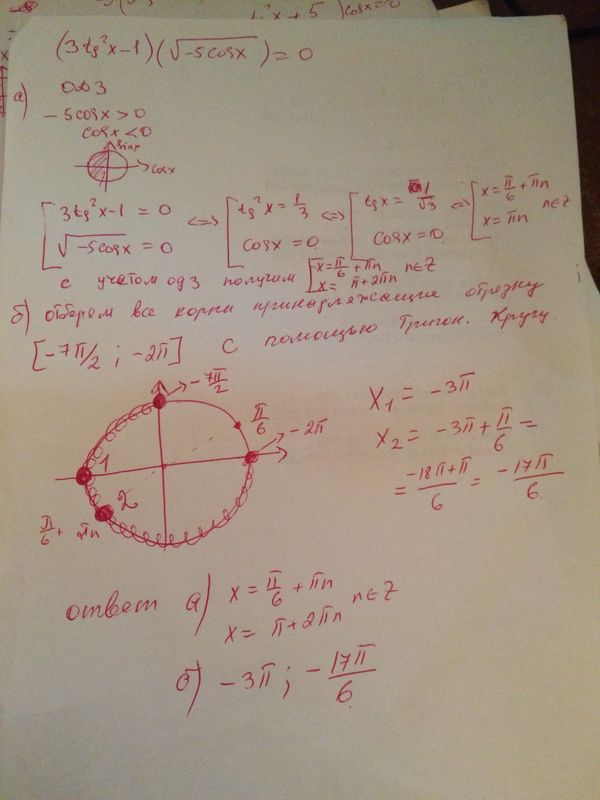 (3tg²x-1)(√-5cosx)=0
а) ОДЗ
-5cosx>0
cosx<0
sinx
cosx
[3tg²x-1=0 <=> [tg²x=1/3 <=> [tgx=1/√3 <=> [x=π/6+πn
[√-5cosx=0 [cosx=0 [cosx=0 [x=πn n∈Z
с учетом одз получим [x=π/6+πn n∈Z
[x=π+2πn
б) отберем все корни принадляжащие отрезку
[-7π/2; -2π] с помощью Тригон. Кругу.
-7π/2
π/6
-2π
1
2
π/6+πn
x₁=-3π
x₂=-3π+π/6=
=-18π+π/6=-17π/6
ответ а) x=π/6+πn
x=π+2πn n∈Z
б) -3π; -17π/6